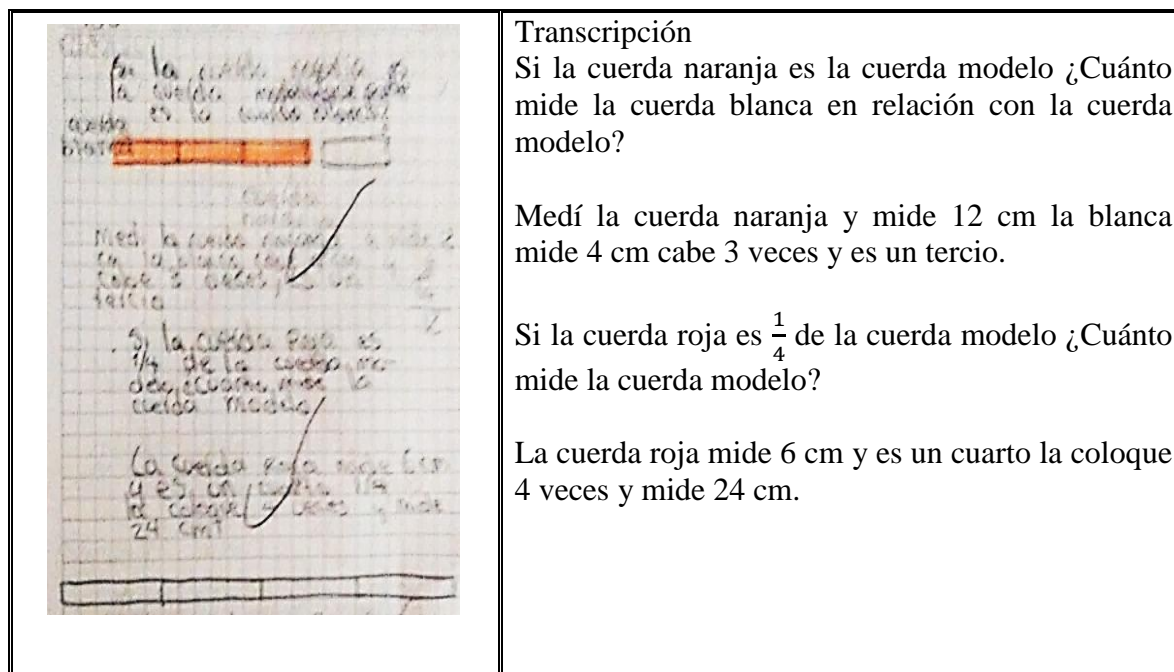 Si la cuerda
la cuerda
es la cuerda blanca?
cuerda
blanca
cuerda
naranja
Medí la cuerda naranja
cm la blanca
cabe 3 veces, es un
tercio
Si la cuerda roja es
1/4 de la cuerda mo-
delo ¿Cuánto mide la
cuerda modelo
La cuerda roja mide 6 cm
y es un cuarto 1/4
la coloque 4 veces y mide
24 cm
Transcripción
Si la cuerda naranja es la cuerda modelo ¿Cuánto
mide la cuerda blanca en relación con la cuerda
modelo?
Medí la cuerda naranja y mide 12 cm la blanca
mide 4 cm cabe 3 veces y es un tercio.
Si la cuerda roja es 1/4 de la cuerda modelo ¿Cuánto
mide la cuerda modelo?
La cuerda roja mide 6 cm y es un cuarto la coloque
4 veces y mide 24 cm.